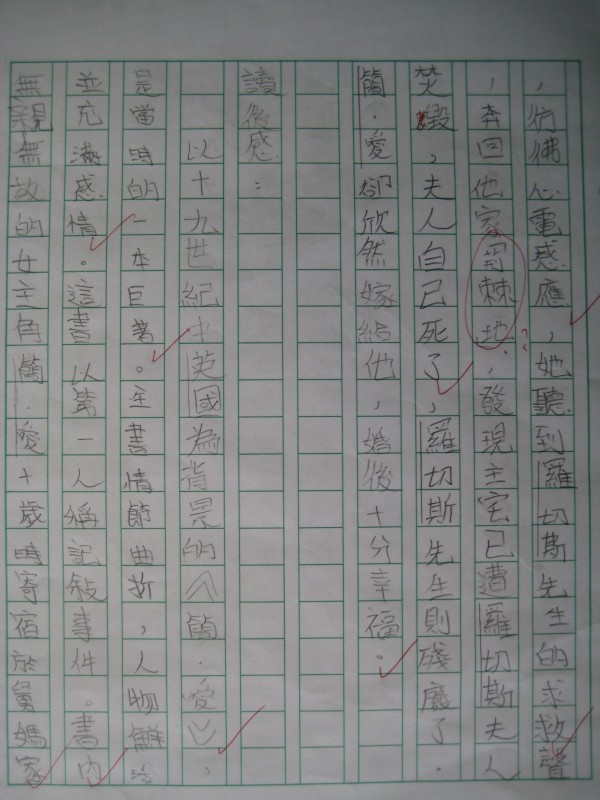 ，彷彿心電感應，她聽到羅切斯先生的求救聲
，奔回他家荊棘地，發現主宅已遭羅切斯夫人
焚毀，夫人自己死了，羅切斯先生則殘廢了．
簡．愛卻欣然嫁給他，婚後十分幸福。
讀後感：
以十九世紀中英國為背景的《簡．愛》，
是當時的一本巨著。全書情節曲折，人物鮮活
並充滿感情。這書以第一人稱記敍事件。書內
無親無故的女主角簡．愛十歲時寄宿於舅媽家